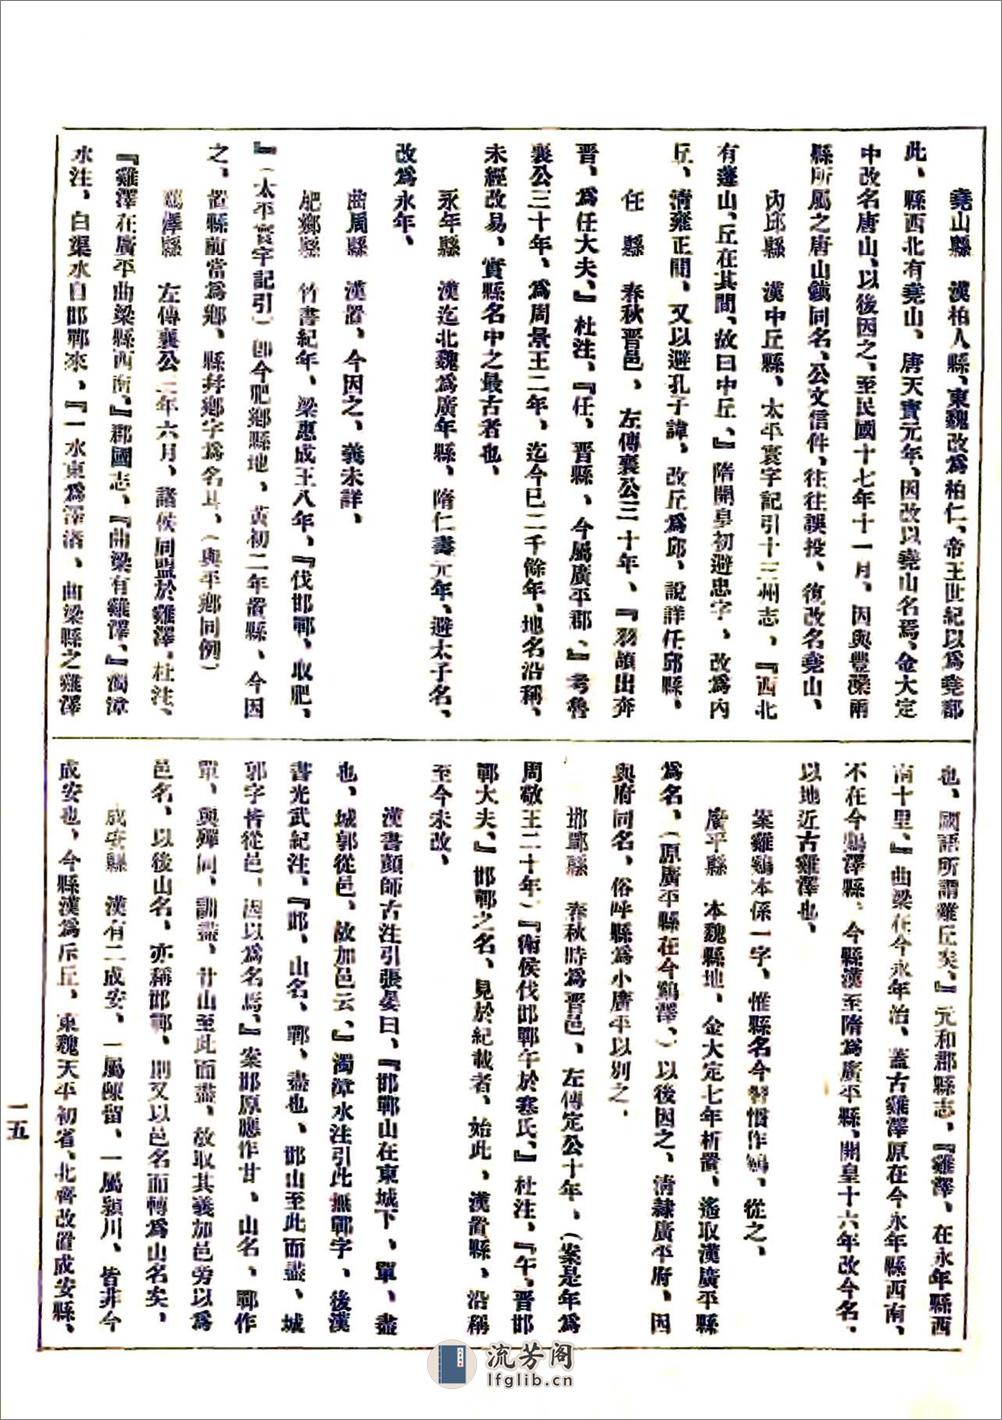 堯山縣　漢柏人縣、東魏改爲柏仁、帝王世紀以爲堯都
此、縣西北有堯山、唐天寶元年、因改以堯山名焉、金大定
中改名唐山、以後因之、至民國十七年十一月、因與豐灤兩
縣所屬之唐山鎮同名、公文信件、往往誤投、復改名堯山、
內邱縣　漢中丘縣、太平寰宇記引十三州志、『西北
有蓬山、丘在其間、故曰中丘、』隋開皇初避忠字、改爲內
丘、清雍正間、又以避孔子諱、改丘爲邱、說詳任邱縣、
任　縣　春秋晉邑、左傳襄公三十年、『羽頡出奔
晉、爲任大夫、』杜注、『任、晉縣、今屬廣平郡、』考魯
襄公三十年、爲周景王二年、迄今已二千餘年、地名沿稱、
未經改易、實縣名中之最古者也、
永年縣　漢迄北魏爲廣年縣、隋仁壽元年、避太子名、
改爲永年、
曲周縣　漢置、今因之、義未詳、
肥鄉縣　竹書紀年、梁惠成王八年、『伐邯鄲、取肥、
』（太平寰宇記引）卽今肥鄉縣地、黃初二年置縣、今因
之、置縣前當爲鄉、縣幷鄉字爲名耳、（與平鄉同例）
鷄澤縣　左傳襄公三年六月、諸侯同盟於雞澤、杜注、
『雞澤在廣平曲梁縣西南、』郡國志、『曲梁有雞澤、』濁漳
水注、白渠水自邯鄲來、『一水東爲澤渚、曲梁縣之雞澤
也、國語所謂雞丘矣、』元和郡縣志、『雞澤、在永年縣西
南十里、』曲梁在今永年治、蓋古雞澤原在今永年縣西南、
不在今鷄澤縣、今縣漢至隋爲廣平縣、開皇十六年改今名、
以地近古雞澤也、
案雞鷄本係一字、惟縣名今習慣作鷄、從之、
廣平縣　本魏縣地、金大定七年析置、遙取漢廣平縣
爲名、（原廣平縣在今鷄澤、）以後因之、清隸廣平府、因
與府同名、俗呼縣爲小廣平以別之、
邯鄲縣　春秋時爲晉邑、左傳定公十年、（案是年爲
周敬王二十年）『衛侯伐邯鄲午於寒氏、』杜注、『午、晉邯
鄲大夫、』邯鄲之名、見於紀載者、始此、漢置縣、沿稱
至今未改、
漢書顏師古注引張晏曰、『邯鄲山在東城下、單、盡
也、城郭從邑、故加邑云、』濁漳水注引此無鄲字、後漢
書光武紀注、『邯、山名、鄲、盡也、邯山至此而盡、城
郭字皆從邑、因以爲名焉、』案邯原應作甘、山名、鄲作
單、與殫同、訓盡、甘山至此而盡、故取其義加邑旁以爲
邑名、以後山名、亦稱邯鄲、則又以邑名而轉爲山名矣、
成安縣　漢有二成安、一屬陳留、一屬潁川、皆非今
成安也、今縣漢爲斥丘、東魏天平初省、北齊改置成安縣、
一五
流芳阁
lfglib.cn